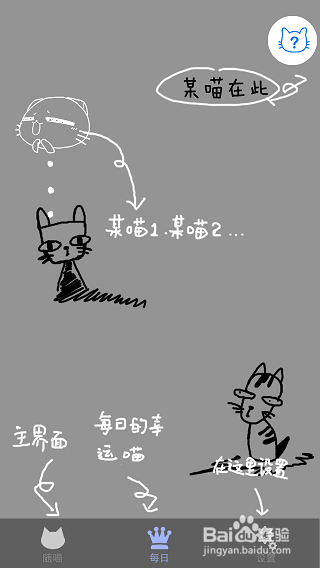 ?
某喵在此
某喵1.某喵2...
主界面
每日的幸
运喵
在这里设置
每日
设置
Baidu经验
jingyan.baidu.com